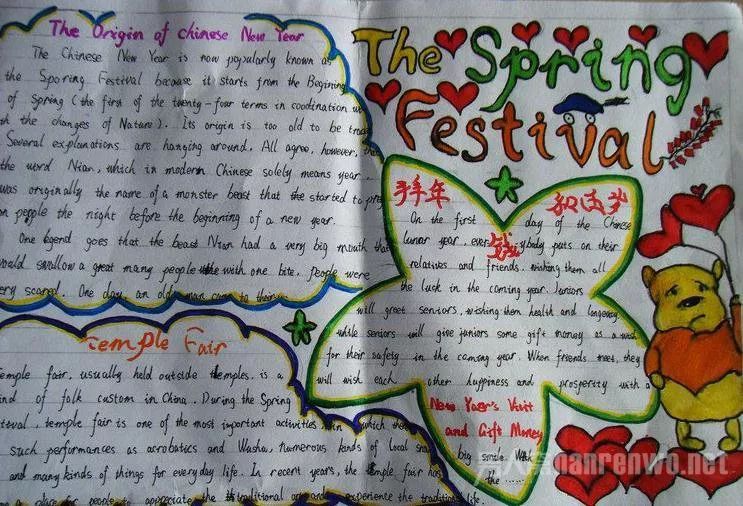 The Origin of Chinese New Year
The Chinese New Year is now popularly known as
the Sporing Festival because it starts from the Beginning
of Spring (the first of the twenty-four terms in coodination w
th the changes of Nature). Its origin is too old to be tra
Several explanations are hanging around. All agree, however, th
the word Nian, which in modern Chinese solely means year,
was originally the name of a monster beast that started to pre
on people the night before the beginning of a new year.
One legend goes that the beast Nian had a very big mouth that
would swallow a great many people with one bite. People were
ery scared. One day, an old man came to their
Temple Fair
emple fair, usually held outside temples, is a
ind of folk custom in China. During the Spring
tival, temple fair is one of the most important activities in which the
such performances as acrobatics and Wushu, numerous kinds of local sna
and many kinds of things for everyday life. In recent years, the temple fair has
a place for people to appreciate the traditional and experience the traditional life.
The Spring
Festival
拜年
On the first day of the Chinese
lunar year, everybody puts on their
relatives and friends, wishing them all
the luck in the coming year. Juniors
will greet seniors, wishing them health and longevity,
while seniors will give juniors some gift money as a wish
for their safety in the caming year. When friends meet, they
will wish each other happiness and prosperity with a
big smile. With
the ......
New Year's Visit
and Gift Money
nanrenwo.net